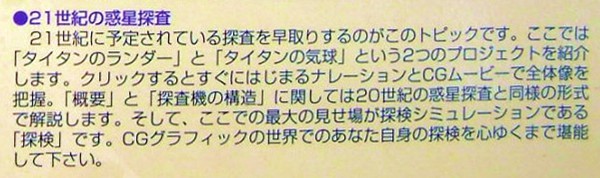 ●21世紀の惑星探査
21世紀に予定されている探査を早取りするのがこのトピックです。ここでは
「タイタンのランダー」と「タイタンの気球」という2つのプロジェクトを紹介
します。クリックするとすぐにはじまるナレーションとCGムービーで全体像を
把握。「概要」と「探査機の構造」に関しては20世紀の惑星探査と同様の形式
で解説します。そして、ここでの最大の見せ場が探検シミュレーションである
「探検」です。CGグラフィックの世界でのあなた自身の探検を心ゆくまで堪能
して下さい。